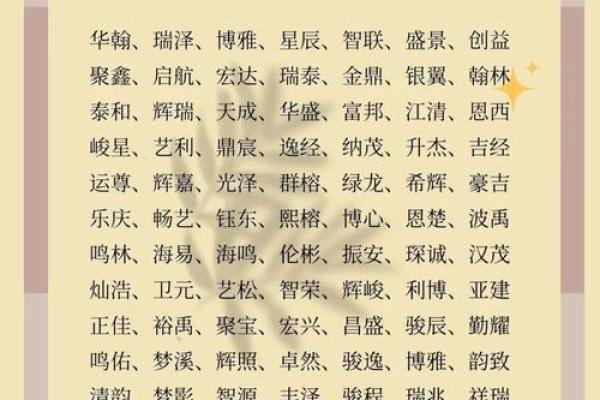 华翰、瑞泽、博雅、星辰、智联、盛景、创益
聚鑫、启航、宏达、瑞泰、金鼎、银翼、翰林
泰和、辉瑞、天成、华盛、富邦、江清、恩西
峻星、艺利、鼎宸、逸经、纳茂、升杰、吉经
运尊、辉嘉、光泽、群榕、绿龙、希辉、豪吉
乐庆、畅艺、钰东、熙榕、博心、恩楚、波禹
鸣林、海易、海鸣、伦彬、振安、琛诚、汉茂
灿浩、卫元、艺松、智荣、辉峻、利博、亚建
正佳、裕禹、聚宝、宏兴、昌盛、骏辰、勤耀
鸣佑、梦溪、辉照、卓然、骏逸、博雅、韵致
清韵、梦影、智源、丰泽、骏程、瑞兆、祥瑞